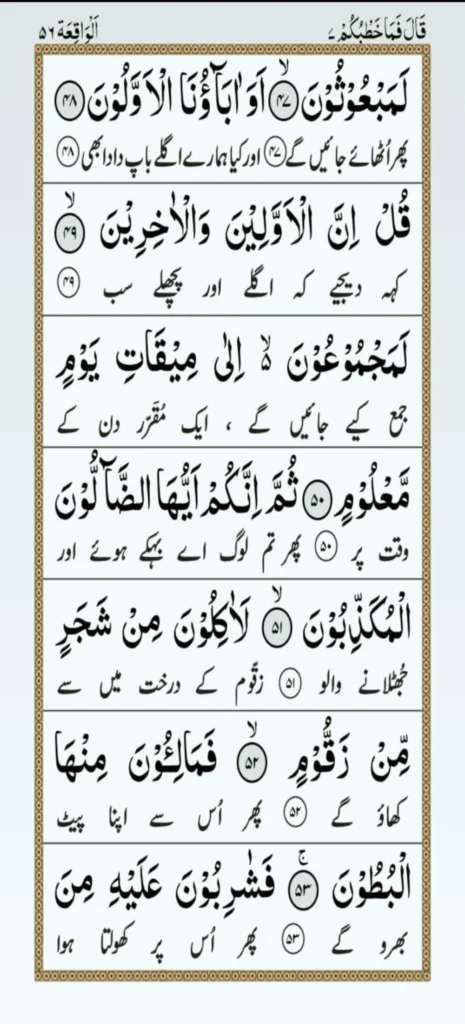 قَالَ فَمَا خَطْبُكُمْ ٢٧ اَلْوَاقِعَة ٥٦
لَمَبْعُوْثُوْنَ ۙ﴿۴۷﴾ اَوَ اٰبَآؤُنَا الْاَوَّلُوْنَ ﴿۴۸﴾
پھر اُٹھائے جائیں گے ﴿۴۷﴾ اور کیا ہمارے اگلے باپ دادا بھی ﴿۴۸﴾
قُلْ اِنَّ الْاَوَّلِيْنَ وَالْاٰخِرِيْنَ ۙ﴿۴۹﴾
کہہ دیجیے کہ اگلے اور پچھلے سب ﴿۴۹﴾
لَمَجْمُوْعُوْنَ ۙ۬ اِلٰى مِيْقَاتِ يَوْمٍ
جمع کیے جائیں گے ، ایک مُقَرَّر دن کے
مَّعْلُوْمٍ ﴿۵۰﴾ ثُمَّ اِنَّكُمْ اَيُّهَا الضَّآلُّوْنَ
وقت پر ﴿۵۰﴾ پھر تم لوگ اے بہکے ہوئے اور
الْمُكَذِّبُوْنَ ۙ﴿۵۱﴾ لَاٰكِلُوْنَ مِنْ شَجَرٍ
جُھٹلانے والو ﴿۵۱﴾ زقّوم کے درخت میں سے
مِّنْ زَقُّوْمٍ ۙ﴿۵۲﴾ فَمَالِـُٔوْنَ مِنْهَا
کھاؤ گے ﴿۵۲﴾ پھر اُس سے اپنا پیٹ
الْبُطُوْنَ ۚ﴿۵۳﴾ فَشٰرِبُوْنَ عَلَيْهِ مِنَ
بھرو گے ﴿۵۳﴾ پھر اُس پر کھولتا ہوا